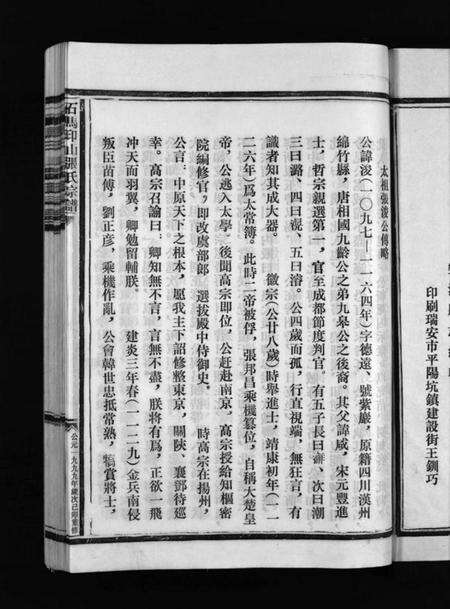 印刷瑞安市平陽坑鎮建設街王釧巧
太祖張浚公傳略
公諱浚(一〇九七—一一六四年)字德遠、號紫巖,原籍四川漢州
綿竹縣,唐相國九齡公之弟九皋公之後裔。其父諱咸,宋元豐進
士,哲宗親選第一,官至成都節度判官。有五子長曰滂、次曰潮
三曰潞、四曰滉、五曰濬。公四歲而孤,行直視端,無狂言,有
識者知其成大器。 徽宗(公廿八歲)時舉進士,靖康初年(一一
二六年)爲太常簿。此時二帝被俘,張邦昌乘機篡位,自稱大楚皇
帝,公逃入太學。後聞高宗即位,公赶赴南京,高宗授給知樞密
院編修官,即改虞部郎 選拔殿中侍御史。 時高宗在揚州,
公言,中原天下之根本,愿我主下詔修整東京,關陝、襄鄧待巡
幸。高宗召諭曰:卿知無不言,言無不盡,朕將有爲,正欲一飛
冲天而羽翼,卿勉留輔朕。 建炎三年春(一一二九)金兵南侵
叛臣苗傅,劉正彥,乘機作亂,公會韓世忠抵常熟,犒賞將士,
石馬印山張氏宗譜
公元一九九九年歲次己卯重修